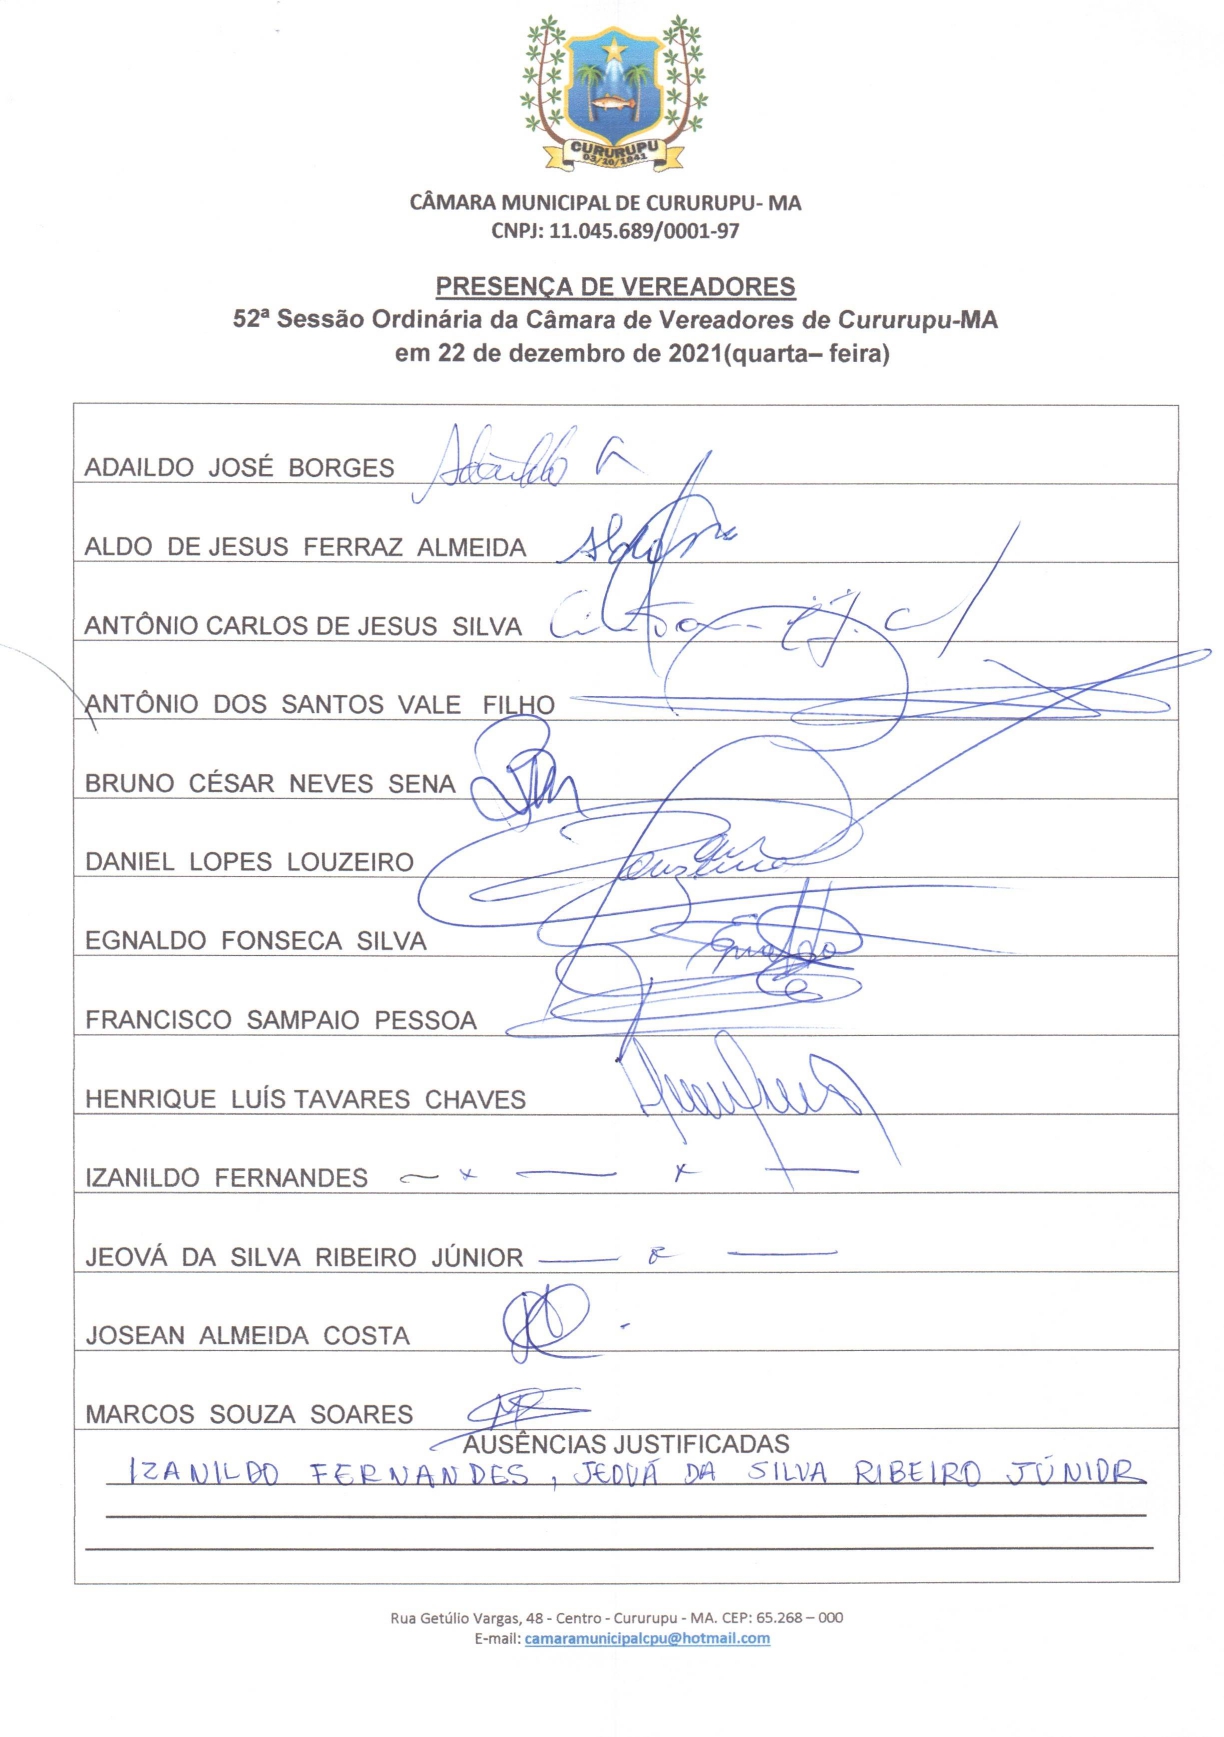 CURURUPU
03/10/1841
CÂMARA MUNICIPAL DE CURURUPU- MA
CNPJ: 11.045.689/0001-97
PRESENÇA DE VEREADORES
52ª Sessão Ordinária da Câmara de Vereadores de Cururupu-MA
em 22 de dezembro de 2021(quarta– feira)
ADAILDO JOSÉ BORGES Adaildo
ALDO DE JESUS FERRAZ ALMEIDA
ANTÔNIO CARLOS DE JESUS SILVA
ANTÔNIO DOS SANTOS VALE FILHO
BRUNO CÉSAR NEVES SENA
DANIEL LOPES LOUZEIRO
EGNALDO FONSECA SILVA
FRANCISCO SAMPAIO PESSOA
HENRIQUE LUÍS TAVARES CHAVES
IZANILDO FERNANDES
JEOVÁ DA SILVA RIBEIRO JÚNIOR
JOSEAN ALMEIDA COSTA
MARCOS SOUZA SOARES
AUSÊNCIAS JUSTIFICADAS
IZANILDO FERNANDES, JEOVÁ DA SILVA RIBEIRO JÚNIOR
Rua Getúlio Vargas, 48 - Centro - Cururupu - MA. CEP: 65.268 – 000
E-mail: camaramunicipalcpu@hotmail.com